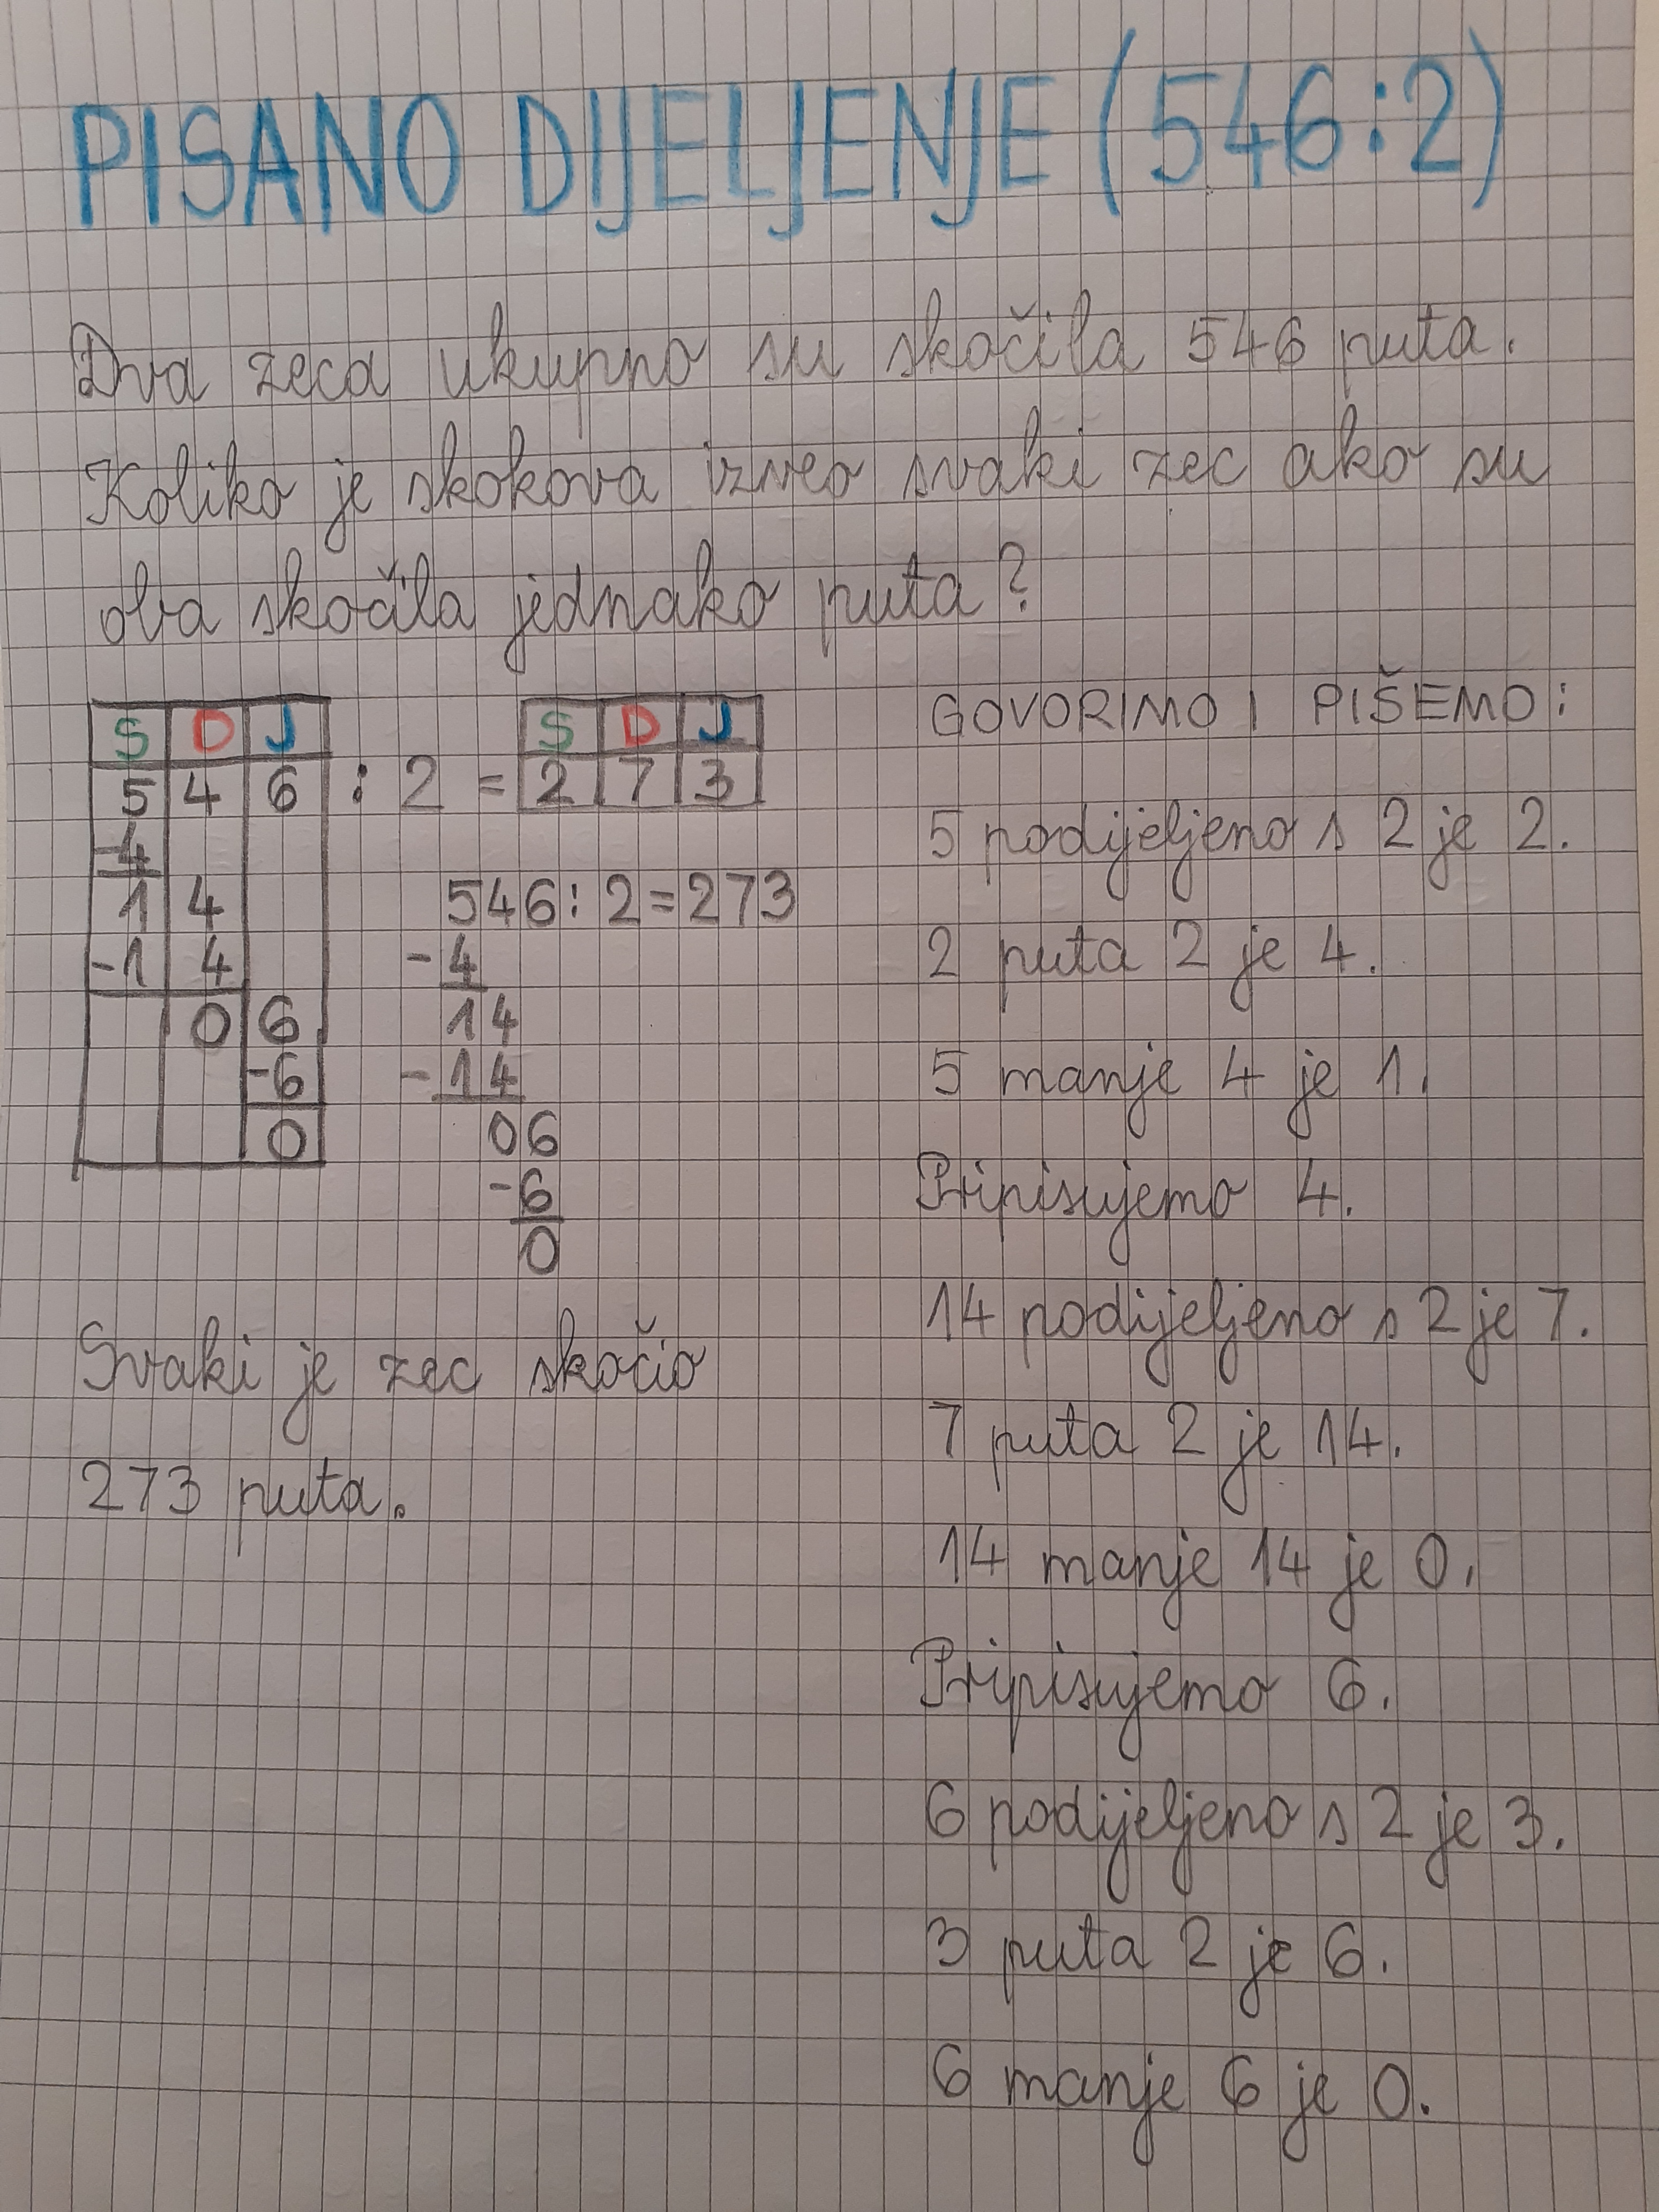 PISANO DIJELJENJE (546:2)
Dva zeca ukupno su skočila 546 puta.
Koliko je skokova izveo svaki zec ako su
oba skočila jednako puta?
S D J
5 4 6 : 2 =
-4
1 4
-1 4
0 6
-6
0
S D J
2 7 3
546:2=273
-4
14
-14
06
-6
0
Svaki je zec skočio
273 puta.
GOVORIMO I PIŠEMO:
5 podijeljeno s 2 je 2.
2 puta 2 je 4.
5 manje 4 je 1.
Pripisujemo 4.
14 podijeljeno s 2 je 7.
7 puta 2 je 14.
14 manje 14 je 0.
Pripisujemo 6.
6 podijeljeno s 2 je 3.
3 puta 2 je 6.
6 manje 6 je 0.